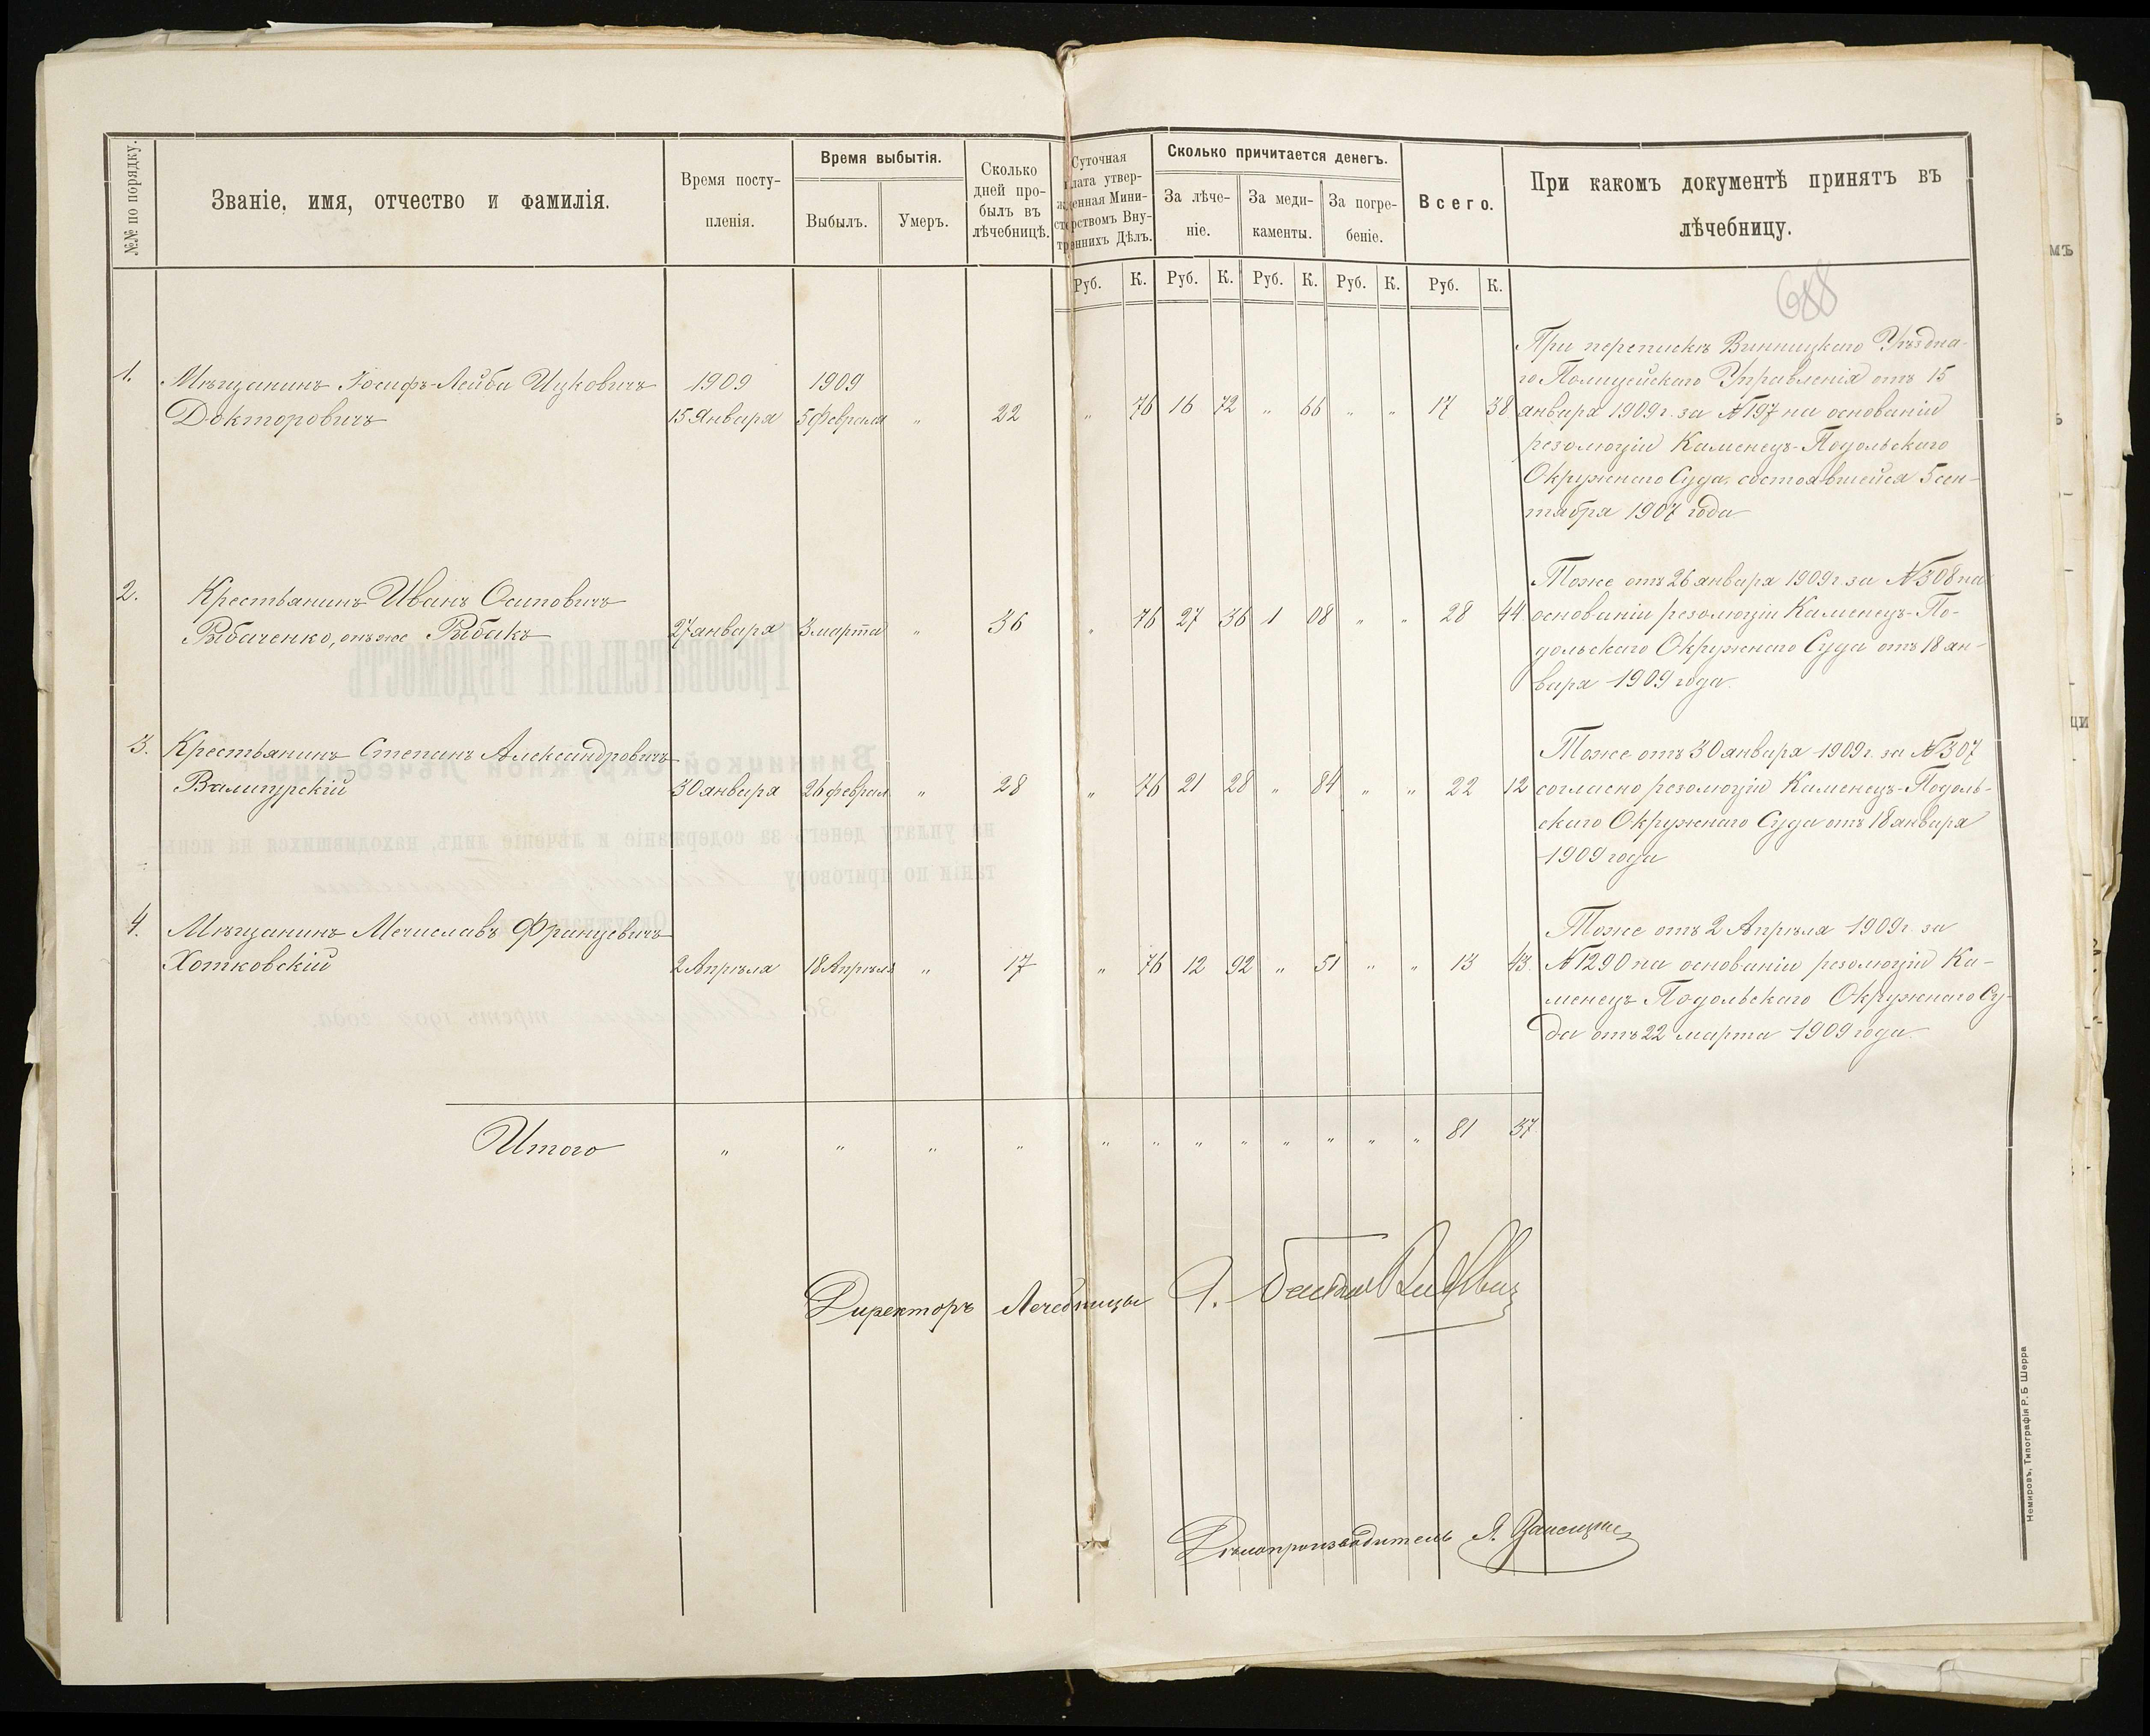 №№ по порядку.
Званіе, имя, отчество и фамилія.
Время посту-
пленія.
Время выбытія.
Выбылъ.
Умеръ.
Сколько
дней про-
былъ въ
лѣчебницѣ.
Суточная
плата утвер-
жденная Мини-
стерствомъ Вну-
треннихъ Дѣлъ.
Сколько причитается денегъ.
За лѣче-
ніе.
За меди-
каменты.
За погре-
беніе.
Всего.
При какомъ документѣ принятъ въ
лѣчебницу.
Руб. К. Руб. К. Руб. К. Руб. К. Руб. К.
688
1. Мѣщанинъ Іосифъ-Лейба Ицковичъ
Докторовичъ
1909
15 Января
1909
5 Февраля
" 22 " 76 16 72 " 66 " " 17 38
При перепискѣ Винницкаго Уѣздна-
го Полицейскаго Управленія отъ 15
января 1909 г. за №197 на основаніи
резолюціи Каменецъ-Подольскаго
Окружнаго Суда, состоявшейся 5 сен-
тября 1907 года
2. Крестьянинъ Иванъ Осиповичъ
Рыбаченко, онъ же Рыбакъ
27 января 3 марта " 36 " 76 27 36 1 08 " " 28 44
Тоже отъ 26 января 1909 г. за №308 на
основаніи резолюціи Каменецъ-По-
дольскаго Окружнаго Суда отъ 18 ян-
варя 1909 года.
3. Крестьянинъ Степанъ Александровичъ
Валигурскій
30 января 26 феврал. " 28 " 76 21 28 " 84 " " 22 12
Тоже отъ 30 января 1909 г. за №307
согласно резолюціи Каменецъ-Подоль-
скаго Окружнаго Суда отъ 18 января
1909 года
4. Мѣщанинъ Мечиславъ Францевичъ
Хотковскій
2 Апрѣля 18 Апрѣля " 17 " 76 12 92 " 51 " " 13 43.
Тоже отъ 2 Апрѣля 1909 г. за
№1290 на основаніи резолюціи Ка-
менецъ Подольскаго Окружнаго Су-
да отъ 22 марта 1909 года.
Итого " " " " " " " " " " " " 81 37.
Директоръ Лечебницы
Дѣлопроизводитель
Немировъ, Типографія Р. Б. Шерра